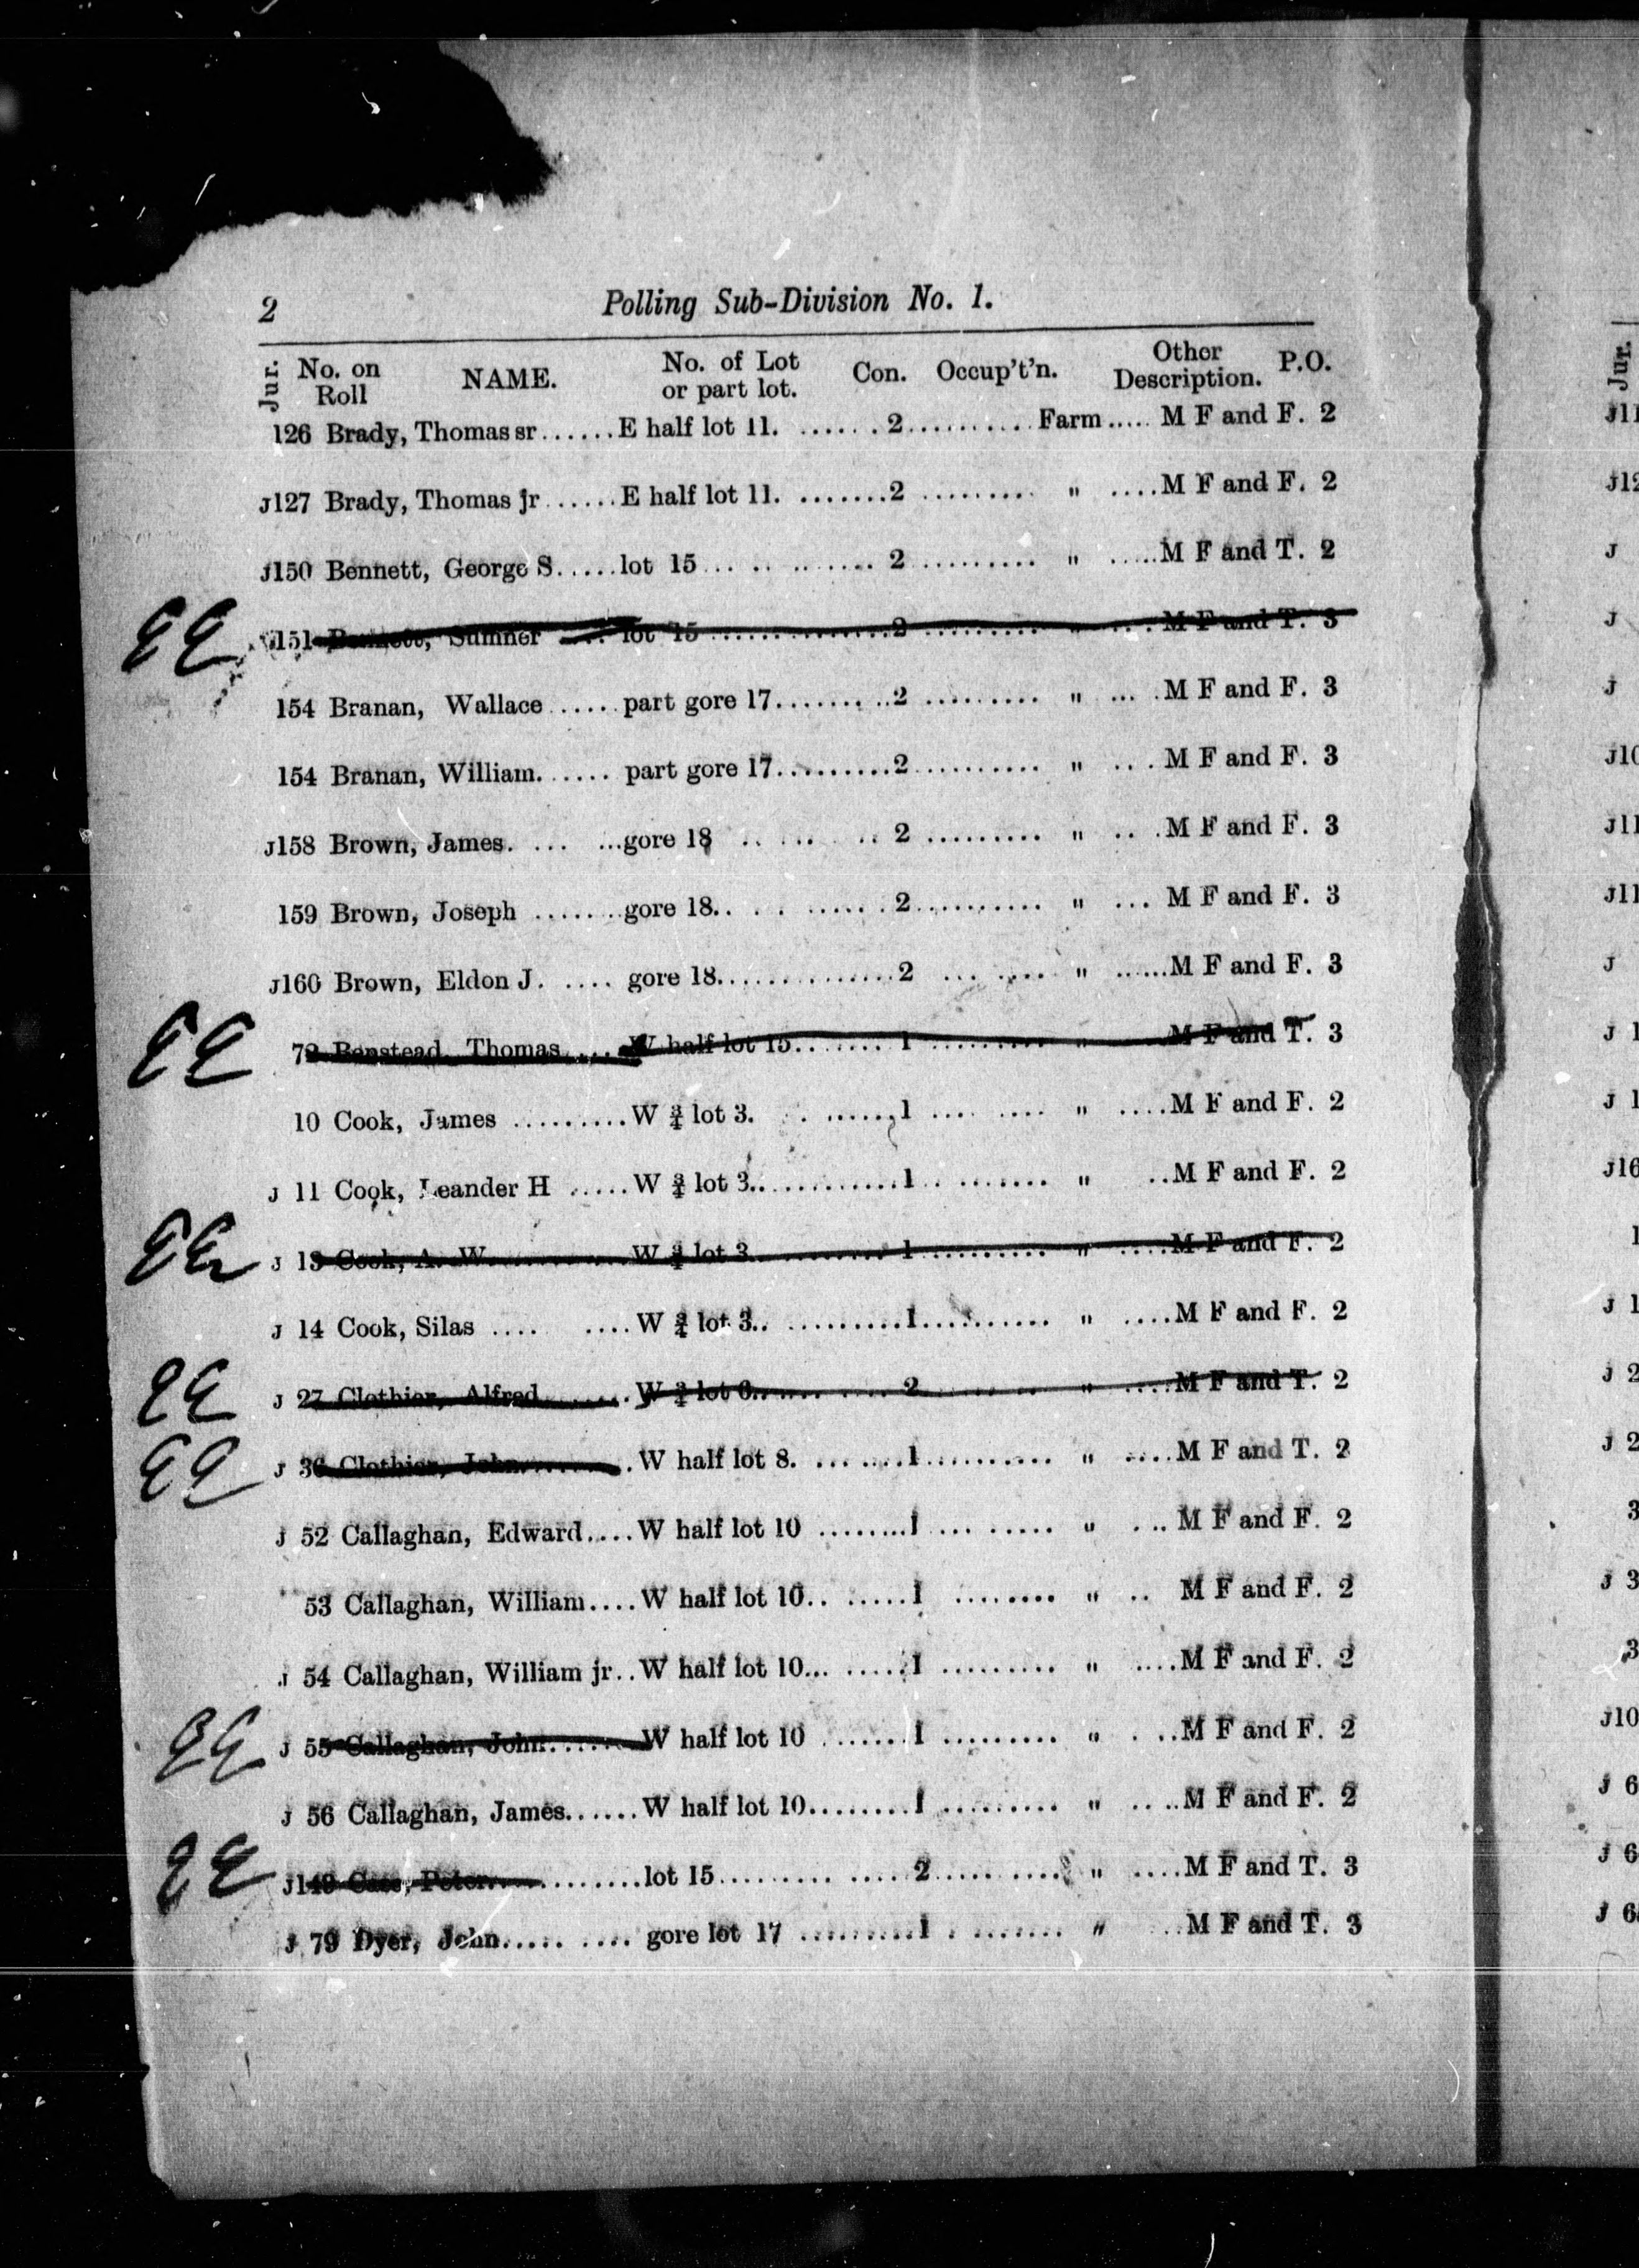 2 Polling Sub-Division No. 1.
Jur. No. on Roll NAME. No. of Lot or part lot. Con. Occup't'n. Other Description. P.O.
126 Brady, Thomas sr......E half lot 11. .......2..........Farm.....M F and F. 2
J127 Brady, Thomas jr......E half lot 11. .......2 ......... " ....M F and F. 2
J150 Bennett, George S.....lot 15... .. ........ 2 .......... " .....M F and T. 2
J151 Bennett, Sumner .... lot 15 ..............2 .......... " ... .M F and T. 3
154 Branan, Wallace .....part gore 17....... ..2 .......... " ... .M F and F. 3
154 Branan, William......part gore 17..........2.......... " ... .M F and F. 3
J158 Brown, James. ... ...gore 18 .. ... .. 2 ......... " .. .M F and F. 3
159 Brown, Joseph .......gore 18.. . . ...... .2.......... " ... M F and F. 3
J160 Brown, Eldon J. .... gore 18..............2 ... .... " ......M F and F. 3
72 Benstead, Thomas.....W half lot 15....... 1 ......... " M F and T. 3
10 Cook, James .........W ¾ lot 3. . ......1 .... .... " ....M F and F. 2
J 11 Cook, Leander H .....W ¾ lot 3.............1.. ....... " ..M F and F. 2
J 13 Cook, A. W...........W ¾ lot 3............1.......... " ....M F and F. 2
J 14 Cook, Silas .... ....W ¾ lot 3.. .........1.......... " ....M F and F. 2
J 27 Clothier, Alfred.......W ¾ lot 6...... ....2....... .. " ....M F and T. 2
J 36 Clothier, John........W half lot 8. ... ....1.......... " ....M F and T. 2
J 52 Callaghan, Edward....W half lot 10 ........1 ... ...... " . ..M F and F. 2
53 Callaghan, William....W half lot 10.. .....1 ........ " .. M F and F. 2
J 54 Callaghan, William jr..W half lot 10... .....1 ......... " ....M F and F. 2
J 55 Callaghan, John.......W half lot 10 .......1 ......... " . ..M F and F. 2
J 56 Callaghan, James......W half lot 10........1 ......... " . ...M F and F. 2
J149 Case, Peter...........lot 15......... .....2.......... " ....M F and T. 3
J 79 Dyer, John..... .... gore lot 17 .........1 . ....... " ..M F and T. 3